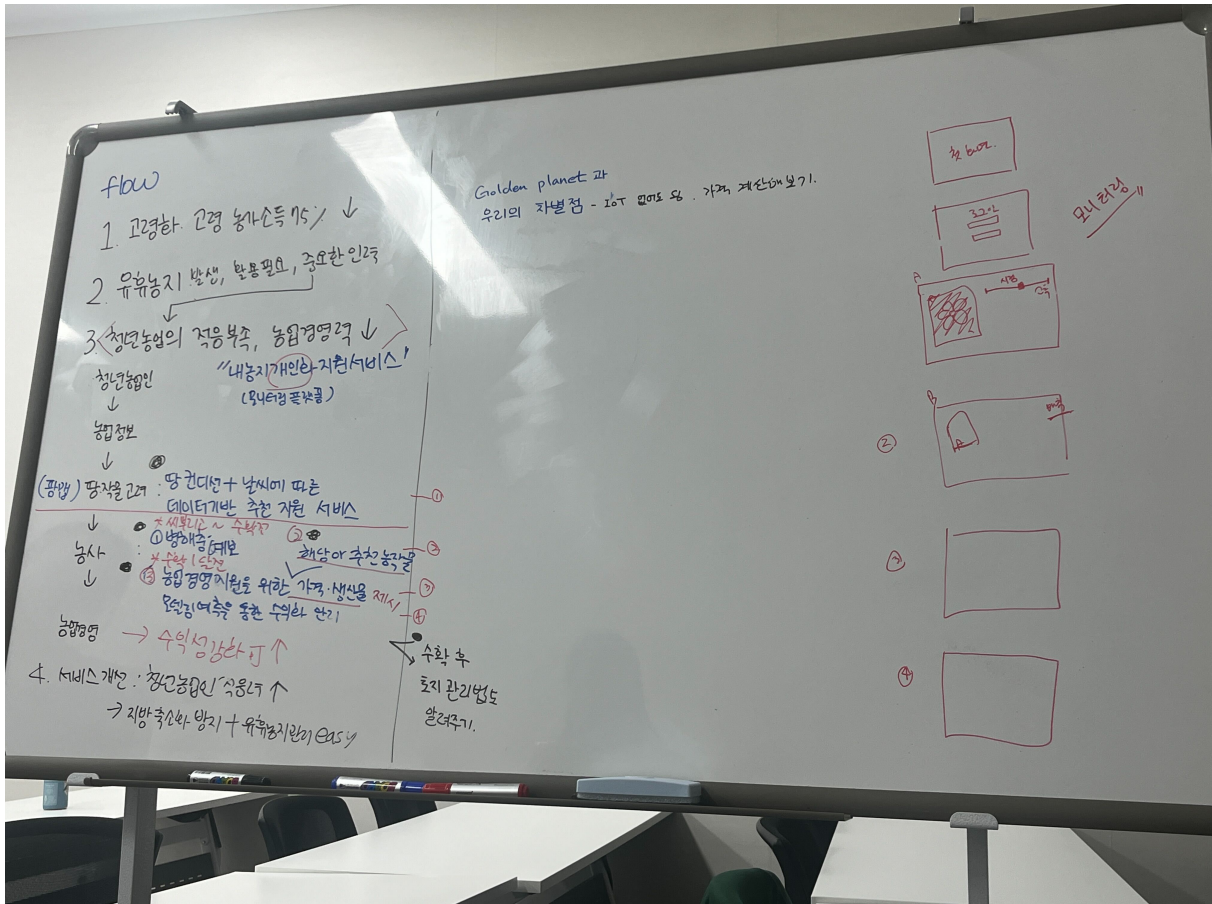 flow
1. 고령화. 고령 농가소득 75% ↓
2. 유휴농지 발생, 활용필요, 중요한 인력
3. 청년농업의 적응부족, 농업경영력 ↓
"내농지 개인화 지원서비스"
(모니터링 플랫폼)
청년농업인
↓
농업정보
↓
(팜맵) 땅.작물 고려 : 땅 컨디션 + 날씨에 따른
데이터기반 추천 지원 서비스
①
↓
* 씨뿌리고 ~ 수확전
농사 : ① 병해충 예보
②
해당 아 추천 농작물
②
* 수확 1달전
↓
농업경영지원을 위한 가격·생산율 제시
③
모델링예측을 통한 수익화 관리
④
농업경영 → 수익성강화 ↑
4. 서비스개선 : 청년농업인 적응력 ↑
→ 지방축소화 방지 + 유휴농지관리 easy
수확 후
토지 관리법도
알려주기.
Golden planet 과
우리의 차별점 - IoT 없어도 됨. 가격 계산해보기.
첫 화면.
로그인
모니터링
A
B
②
A
③
④